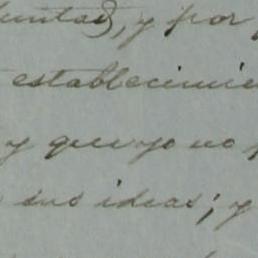 juntas, y por
establecimie
y que yo no
sus ideas; y